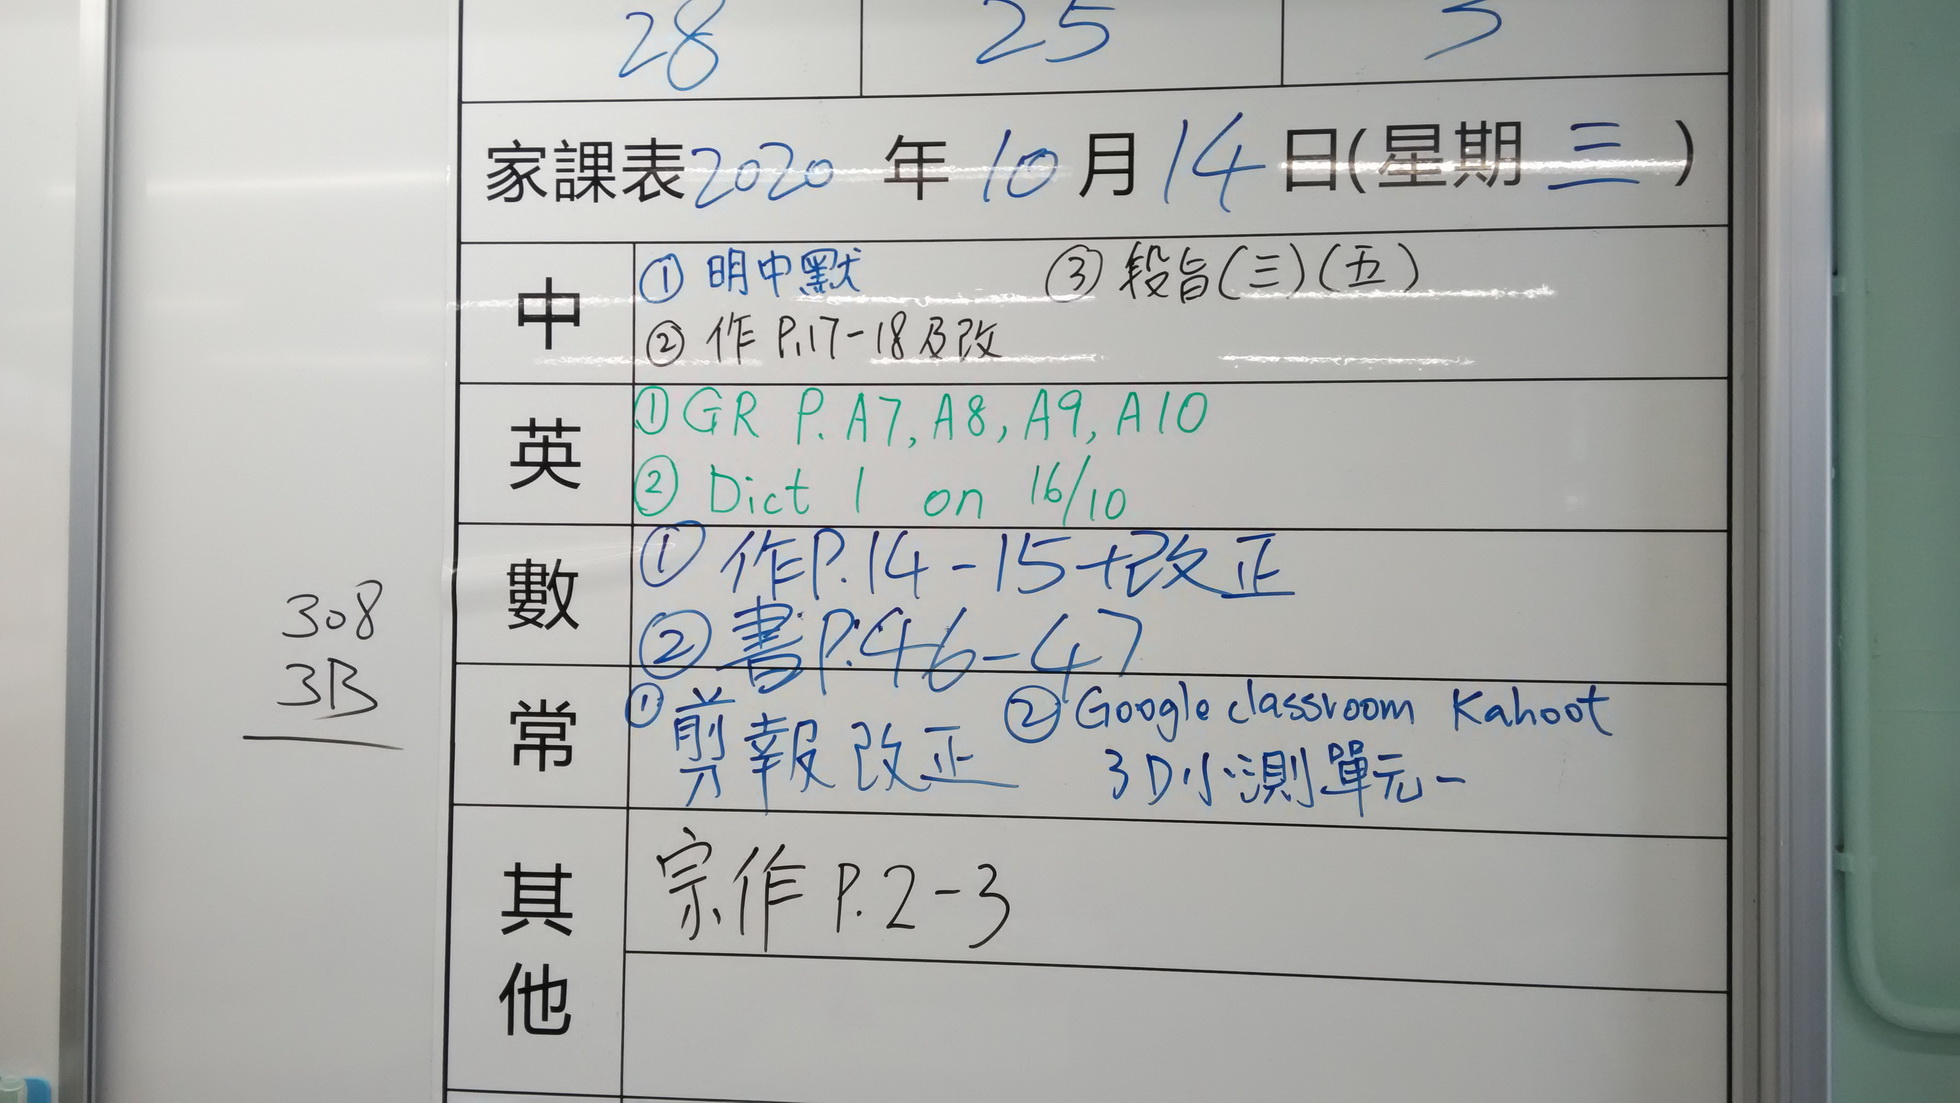 28 25 3
家課表2020年10月14日(星期三)
中
① 明中默 ③ 段旨(三)(五)
② 作 P.17-18及改
英
① GR P. A7, A8, A9, A10
② Dict 1 on 16/10
數
① 作P.14-15+改正
② 書P.46-47
常
① 剪報改正 ② Google classroom Kahoot
3D小測單元一
其他
宗作 P.2-3
308
3B